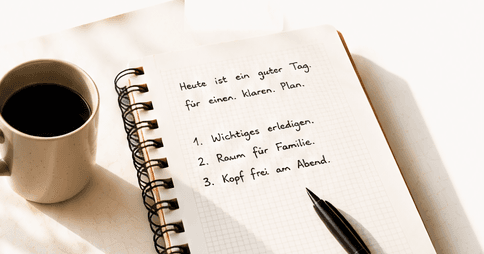 Heute ist ein guter Tag.
für einen. klaren. Plan.
1. Wichtiges erledigen.
2. Raum für Familie.
3. Kopf frei am Abend.